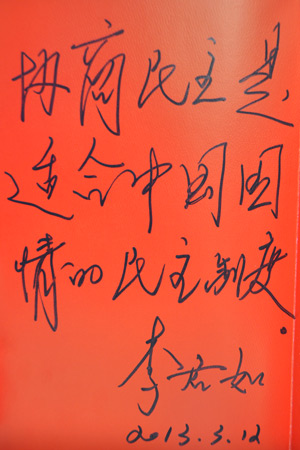 协商民主是
适合中国国
情的民主制度.
李君如
2013.3.12